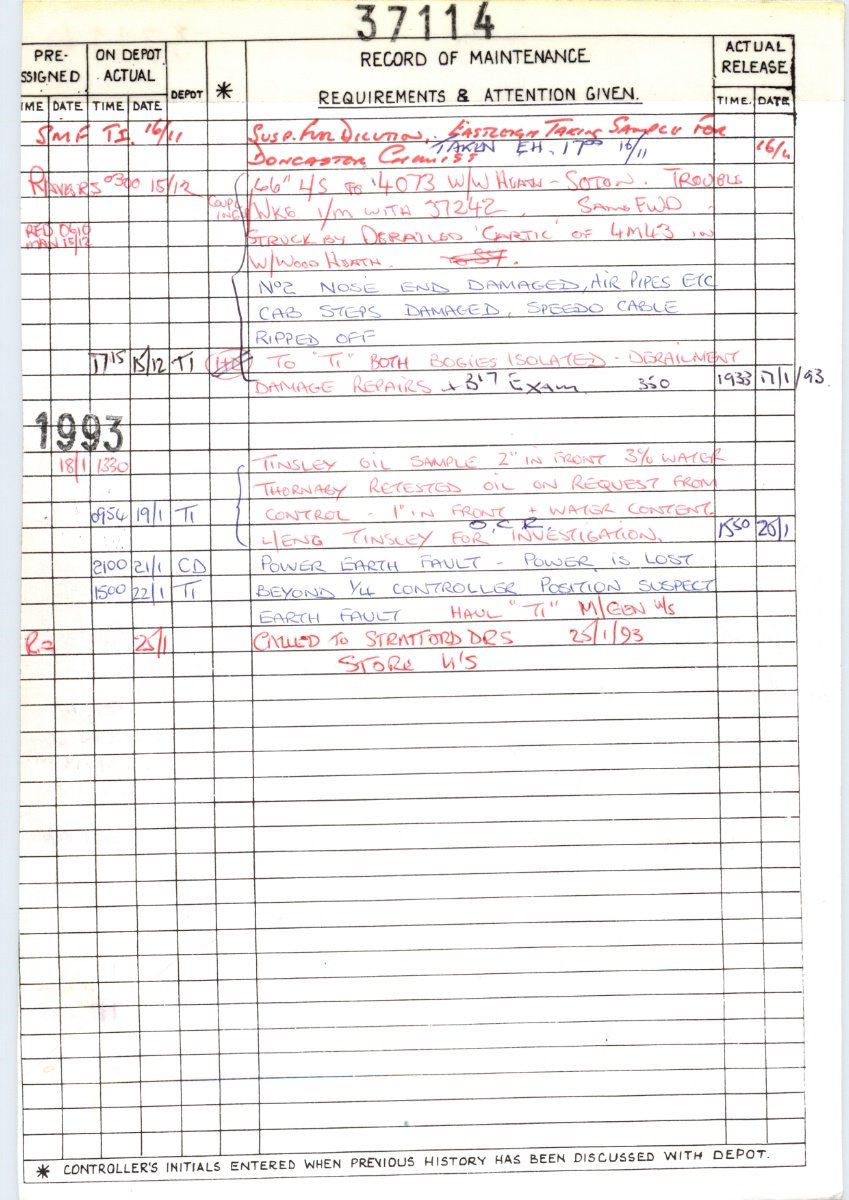 37114
PRE-
SSIGNED
ON DEPOT
ACTUAL
DEPOT
*
RECORD OF MAINTENANCE
REQUIREMENTS & ATTENTION GIVEN.
ACTUAL
RELEASE
IME DATE TIME DATE
TIME. DATE
SMF TI. 16/11 SUSP. FUEL DILUTION. EASTLEIGH TAKING SAMPLE FOR
TAKEN EH. 17⁰⁰ 16/11
DONCASTER CHEMIST 16/11
0300 15/12 "66" L/S 4073 W/W HEATH - SOTON. TROUBLE
COUPL
ING
WKG I/M WITH 37242. SAME FWD
RED 0610
MAN 15/12
STRUCK BY DERAILED 'CARTIC' OF 4M43 IN
W/WOOD HEATH.
Nº2 NOSE END DAMAGED, AIR PIPES ETC
CAB STEPS DAMAGED, SPEEDO CABLE
RIPPED OFF
17¹⁵ 15/12 TI TO "TI" BOTH BOGIES ISOLATED - DERAILMENT
DAMAGE REPAIRS + EXAM 350 1933 17/1/93.
1993
18/1 1330 TINSLEY OIL SAMPLE 2" IN FRONT 3% WATER
THORNABY RETESTED OIL ON REQUEST FROM
0954 19/1 TI CONTROL - 1" IN FRONT + WATER CONTENT.
O.C.R.
L/ENG TINSLEY FOR INVESTIGATION. 1550 20/1
2100 21/1 CD POWER EARTH FAULT - POWER IS LOST
1500 22/1 TI BEYOND 1/4 CONTROLLER POSITION SUSPECT
EARTH FAULT HAUL "TI" M/GEN U/S
25/1 CALLED TO STRATFORD DRS 25/1/93
STORE U/S
* CONTROLLER'S INITIALS ENTERED WHEN PREVIOUS HISTORY HAS BEEN DISCUSSED WITH DEPOT.